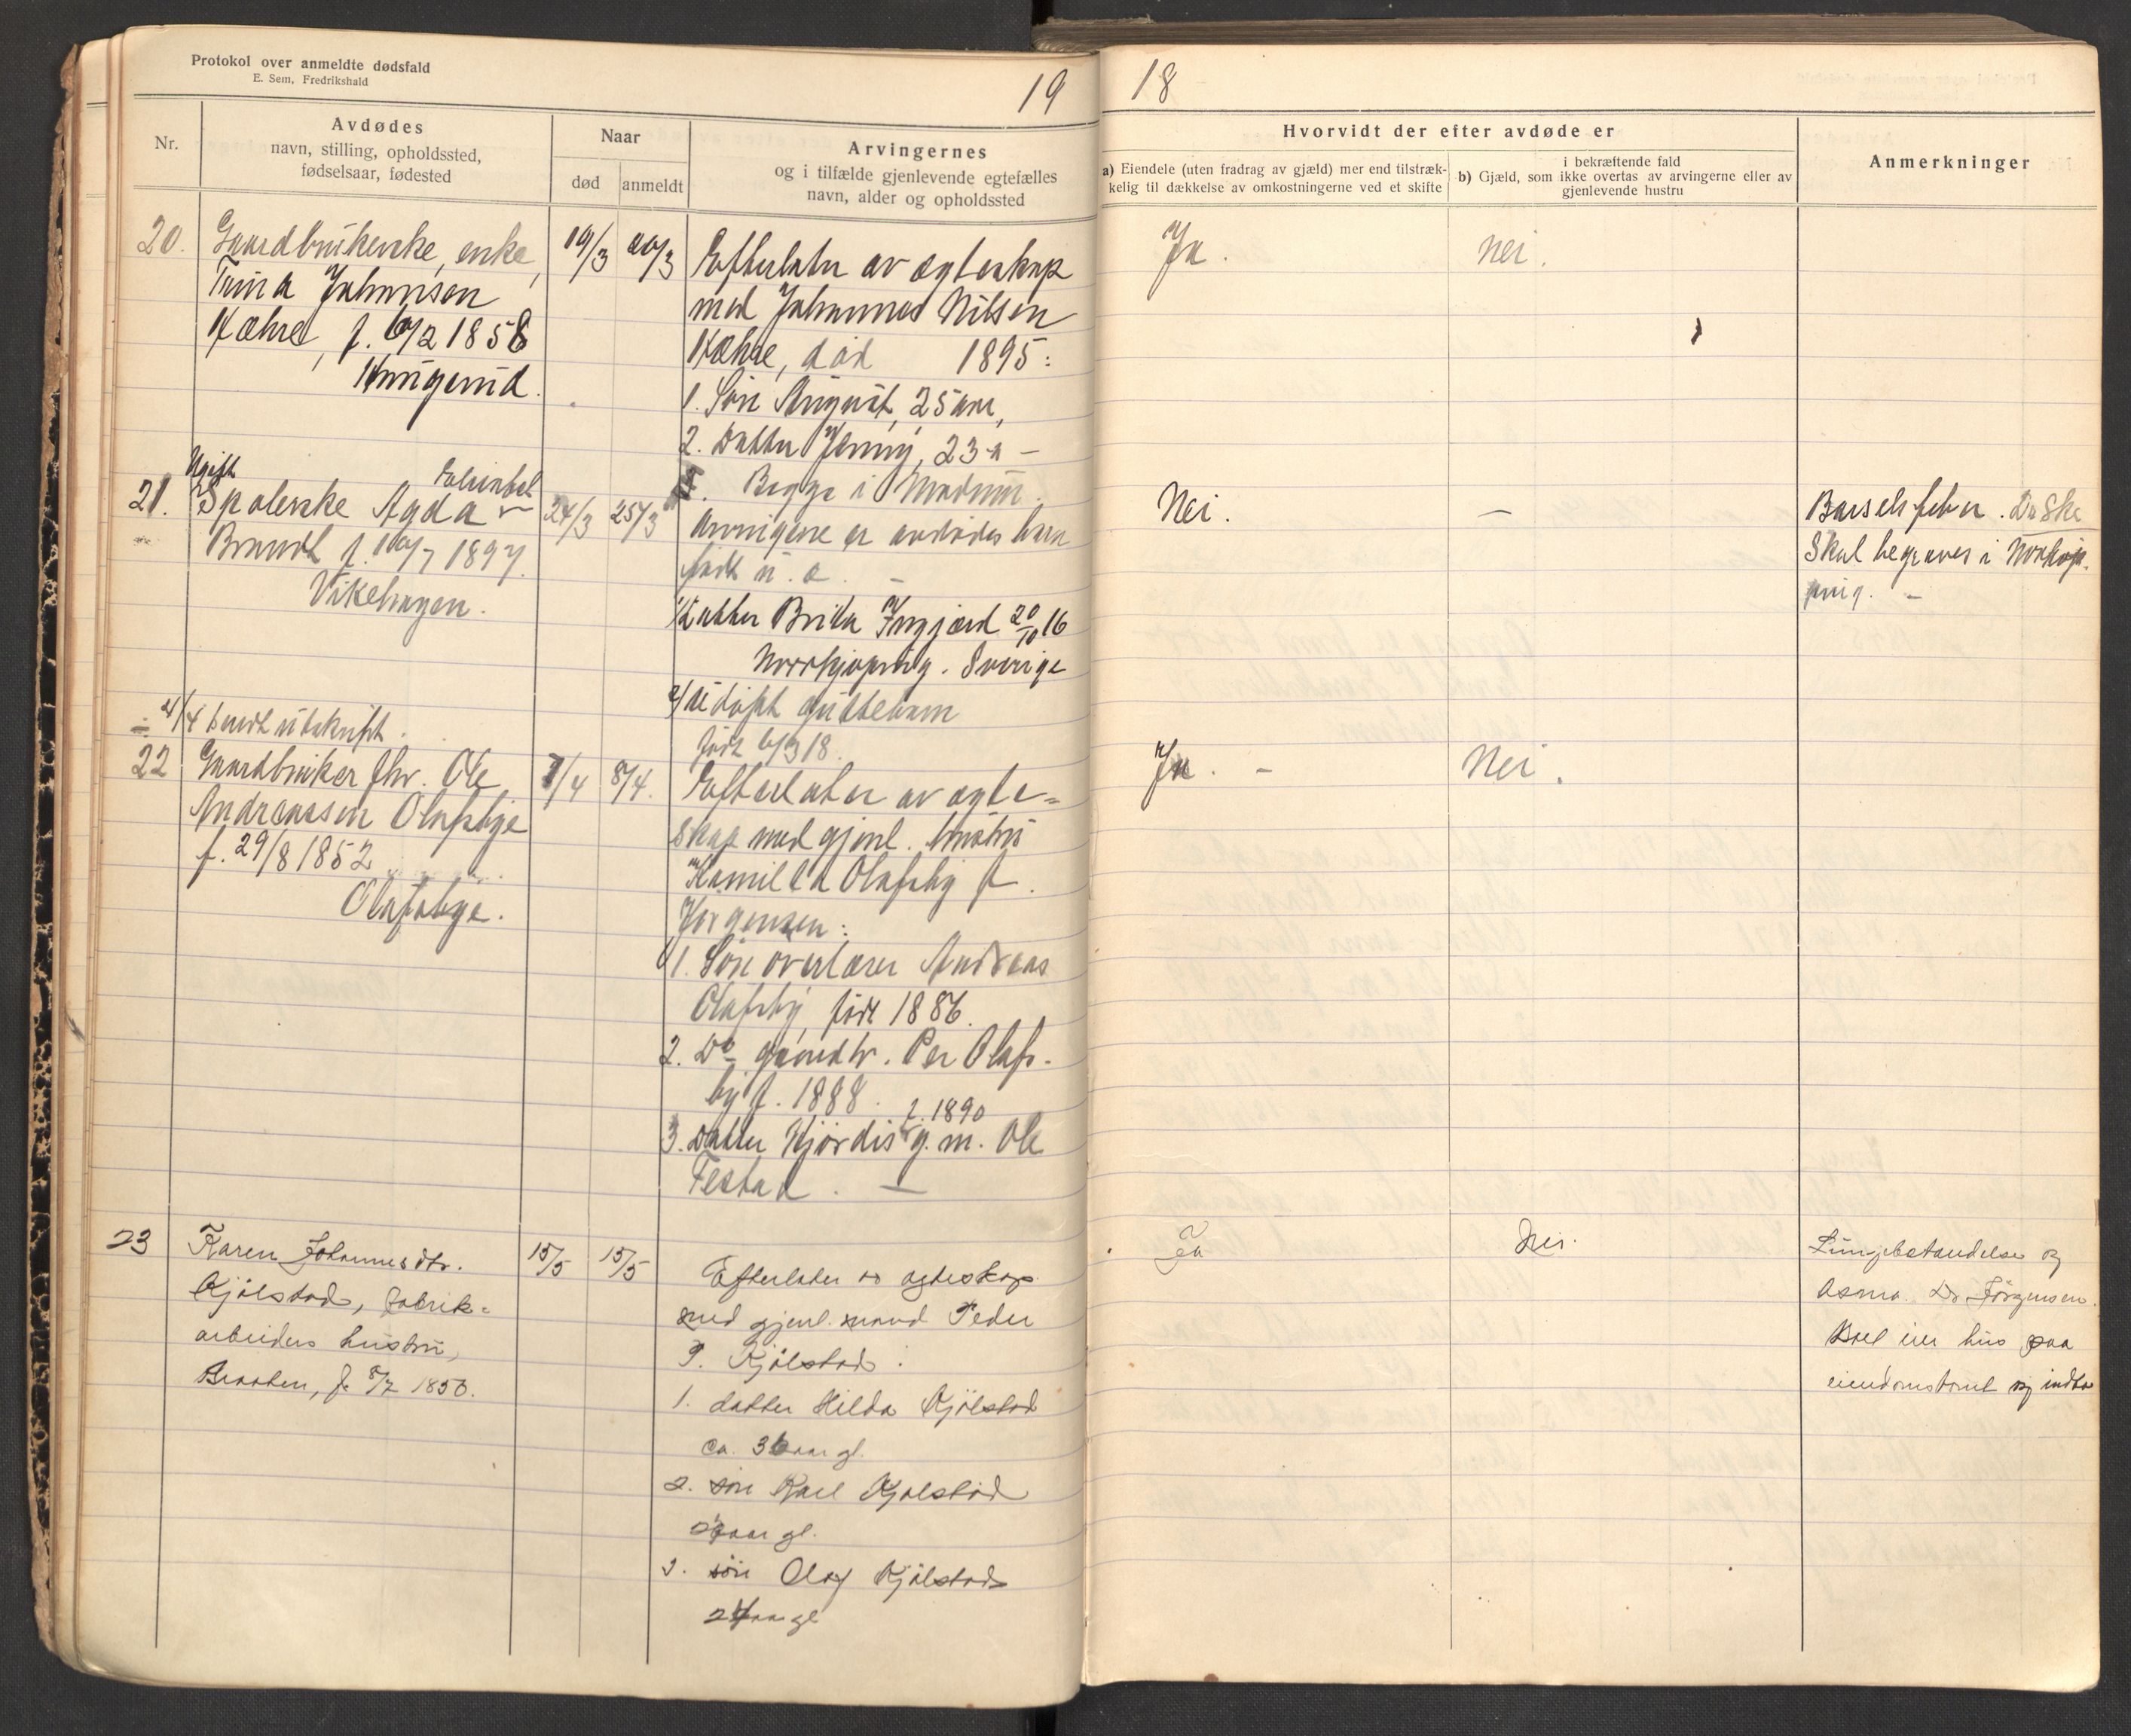 Protokol over anmeldte dødsfald
E. Sem, Fredrikshald
19
Nr.
Avdødes
navn, stilling, opholdssted,
fødselsaar, fødested
Naar
død
anmeldt
Arvingernes
og i tilfælde gjenlevende egtefælles
navn, alder og opholdssted
20.
Gaardbrukerske, enke,
Trina Johannsen
Kæhre, f. 6/2 1858
19/3
20/3
Efterlater av ægteskap
med Johannes Nilsen
Kæhre, død 1895:
1. Søn August, 25 aar,
2. Datter Jenny, 23 a –
Begge i Modum.
Ugift
Elisabet
21.
Spolerske Agda
Brandt f. 1897.
Vikehagen.
24/3
25/3
Arvingene er avdødes barn
født u. æ. –
1/ Datter Brita Ingjerd 20/10 16
Norrkjøping. Sverige
2/ udøpt guttebarn
født 6/3 18.
÷ 4/4 sendt utskrift.
22
Gaardbruker fhv. Ole
Andreassen Olafsbye
f. 29/8 1852
Olafsbye.
7/4
8/4.
Efterlater av ægte-
skap med gjenl. hustru
Kamilla Olafsby f.
Jørgensen:
1. Søn overlærer Andreas
Olafsby, født 1886.
2. Do gaardbr. Per Olafs-
by f. 1888.
f. 1890
3. Datter Hjørdis g. m. Ole
Festad. –
23
Karen Johannesdtr.
Kjølstad, fabrik-
arbeiders hustru,
Braaten, f. 1850.
15/5
15/5
Efterlater av ægteskap
med gjenl. mand Peder
P. Kjølstad:
1. datter Hilda Kjølstad
ca. 36 aar gl.
2. søn Karl Kjølstad
aar gl.
3. søn Olaf Kjølstad
24 aar gl
18
Hvorvidt der efter avdøde er
a) Eiendele (uten fradrag av gjæld) mer end tilstræk-
kelig til dækkelse av omkostningerne ved et skifte
i bekræftende fald
b) Gjæld, som ikke overtas av arvingerne eller av
gjenlevende hustru
Anmerkninger
Ja.
Nei.
Nei.
–
Barselsfeber. Dr Ske
Skal begraves i Norkøp-
ping. –
Ja. –
Nei.
Ja
Nei.
Lungebetændelse og
Asma. Dr Jörgensen.
Boet eier hus paa
eiendomstomt og indbo